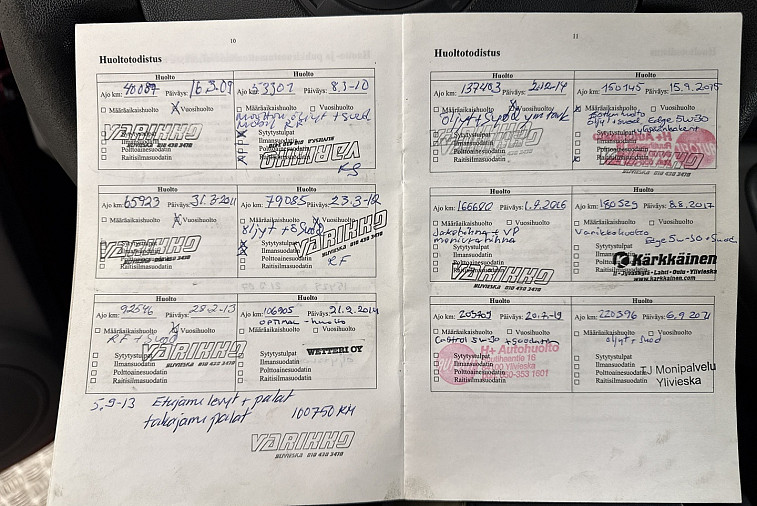 10
Huoltotodistus
Huolto
Ajo km: 40087 Päiväys: 16.3.09
Määräaikaishuolto X Vuosihuolto
VARIKKO
YLIVIESKA 010 430 3470
Sytytystulpat
Ilmansuodatin
Polttoainesuodatin
Raitisilmasuodatin
Huolto
Ajo km: 53301 Päiväys: 8.3-10
Määräaikaishuolto Vuosihuolto
öljyt + suod
RF
Sytytystulpat
Ilmansuodatin
Polttoainesuodatin
Raitisilmasuodatin
VARIKKO
Huolto
Ajo km: 65923 Päiväys: 31.3-2011
Määräaikaishuolto X Vuosihuolto
VARIKKO
YLIVIESKA 010 430 3470
Sytytystulpat
Ilmansuodatin
Polttoainesuodatin
Raitisilmasuodatin
Huolto
Ajo km: 79085 Päiväys: 23.3-12
Määräaikaishuolto X Vuosihuolto
öljyt + suod
VARIKKO
YLIVIESKA 010 430 3470
Sytytystulpat
Ilmansuodatin
Polttoainesuodatin
Raitisilmasuodatin
RF
Huolto
Ajo km: 92546 Päiväys: 25.2-13
Määräaikaishuolto X Vuosihuolto
RF + Suod
VARIKKO
YLIVIESKA 010 430 3470
Sytytystulpat
Ilmansuodatin
Polttoainesuodatin
Raitisilmasuodatin
Huolto
Ajo km: 106905 Päiväys: 21.2.2014
OPTIMAL - huolto
Määräaikaishuolto Vuosihuolto
WETTERI OY
Sytytystulpat
Ilmansuodatin
Polttoainesuodatin
Raitisilmasuodatin
5.9-13 Etujarru levyt + palat
takajarru palat 100750 KM
VARIKKO
YLIVIESKA 010 430 3470
11
Huoltotodistus
Huolto
Ajo km: 137403 Päiväys: 2.12-14
Määräaikaishuolto X Vuosihuolto
öljyt + suod
VARIKKO
YLIVIESKA 010 430 3470
Sytytystulpat
Ilmansuodatin
Polttoainesuodatin
Raitisilmasuodatin
Huolto
Ajo km: 150145 Päiväys: 15.9.2015
X Määräaikaishuolto Vuosihuolto
öljyt + suod. Edge 5w30
Sytytystulpat
Ilmansuodatin
Polttoainesuodatin
Raitisilmasuodatin
H+ Autohuolto
Huolto
Ajo km: 166680 Päiväys: 1.9.2016
Jakohihna + VP
moniurahihna
Sytytystulpat
Ilmansuodatin
Polttoainesuodatin
Raitisilmasuodatin
VARIKKO
YLIVIESKA 010 430 3470
Huolto
Ajo km: 180529 Päiväys: 8.8.2017
Määräaikaishuolto Vuosihuolto
Varikkohuolto
Edge 5w-30 + Suod.
Sytytystulpat
Ilmansuodatin
Kärkkäinen
Jyväskylä - Lahti - Oulu - Ylivieska
www.karkkainen.com
Huolto
Ajo km: 205709 Päiväys: 20.7-19
Määräaikaishuolto Vuosihuolto
Castrol 5w30 + suodatin
H+ Autohuolto
Ylivieska
Sytytystulpat
Ilmansuodatin
Polttoainesuodatin
Raitisilmasuodatin
Huolto
Ajo km: 220596 Päiväys: 6.9 2021
Määräaikaishuolto Vuosihuolto
öljyt + suod
Sytytystulpat
Ilmansuodatin
Polttoainesuodatin
Raitisilmasuodatin
TJ Monipalvelu
Ylivieska